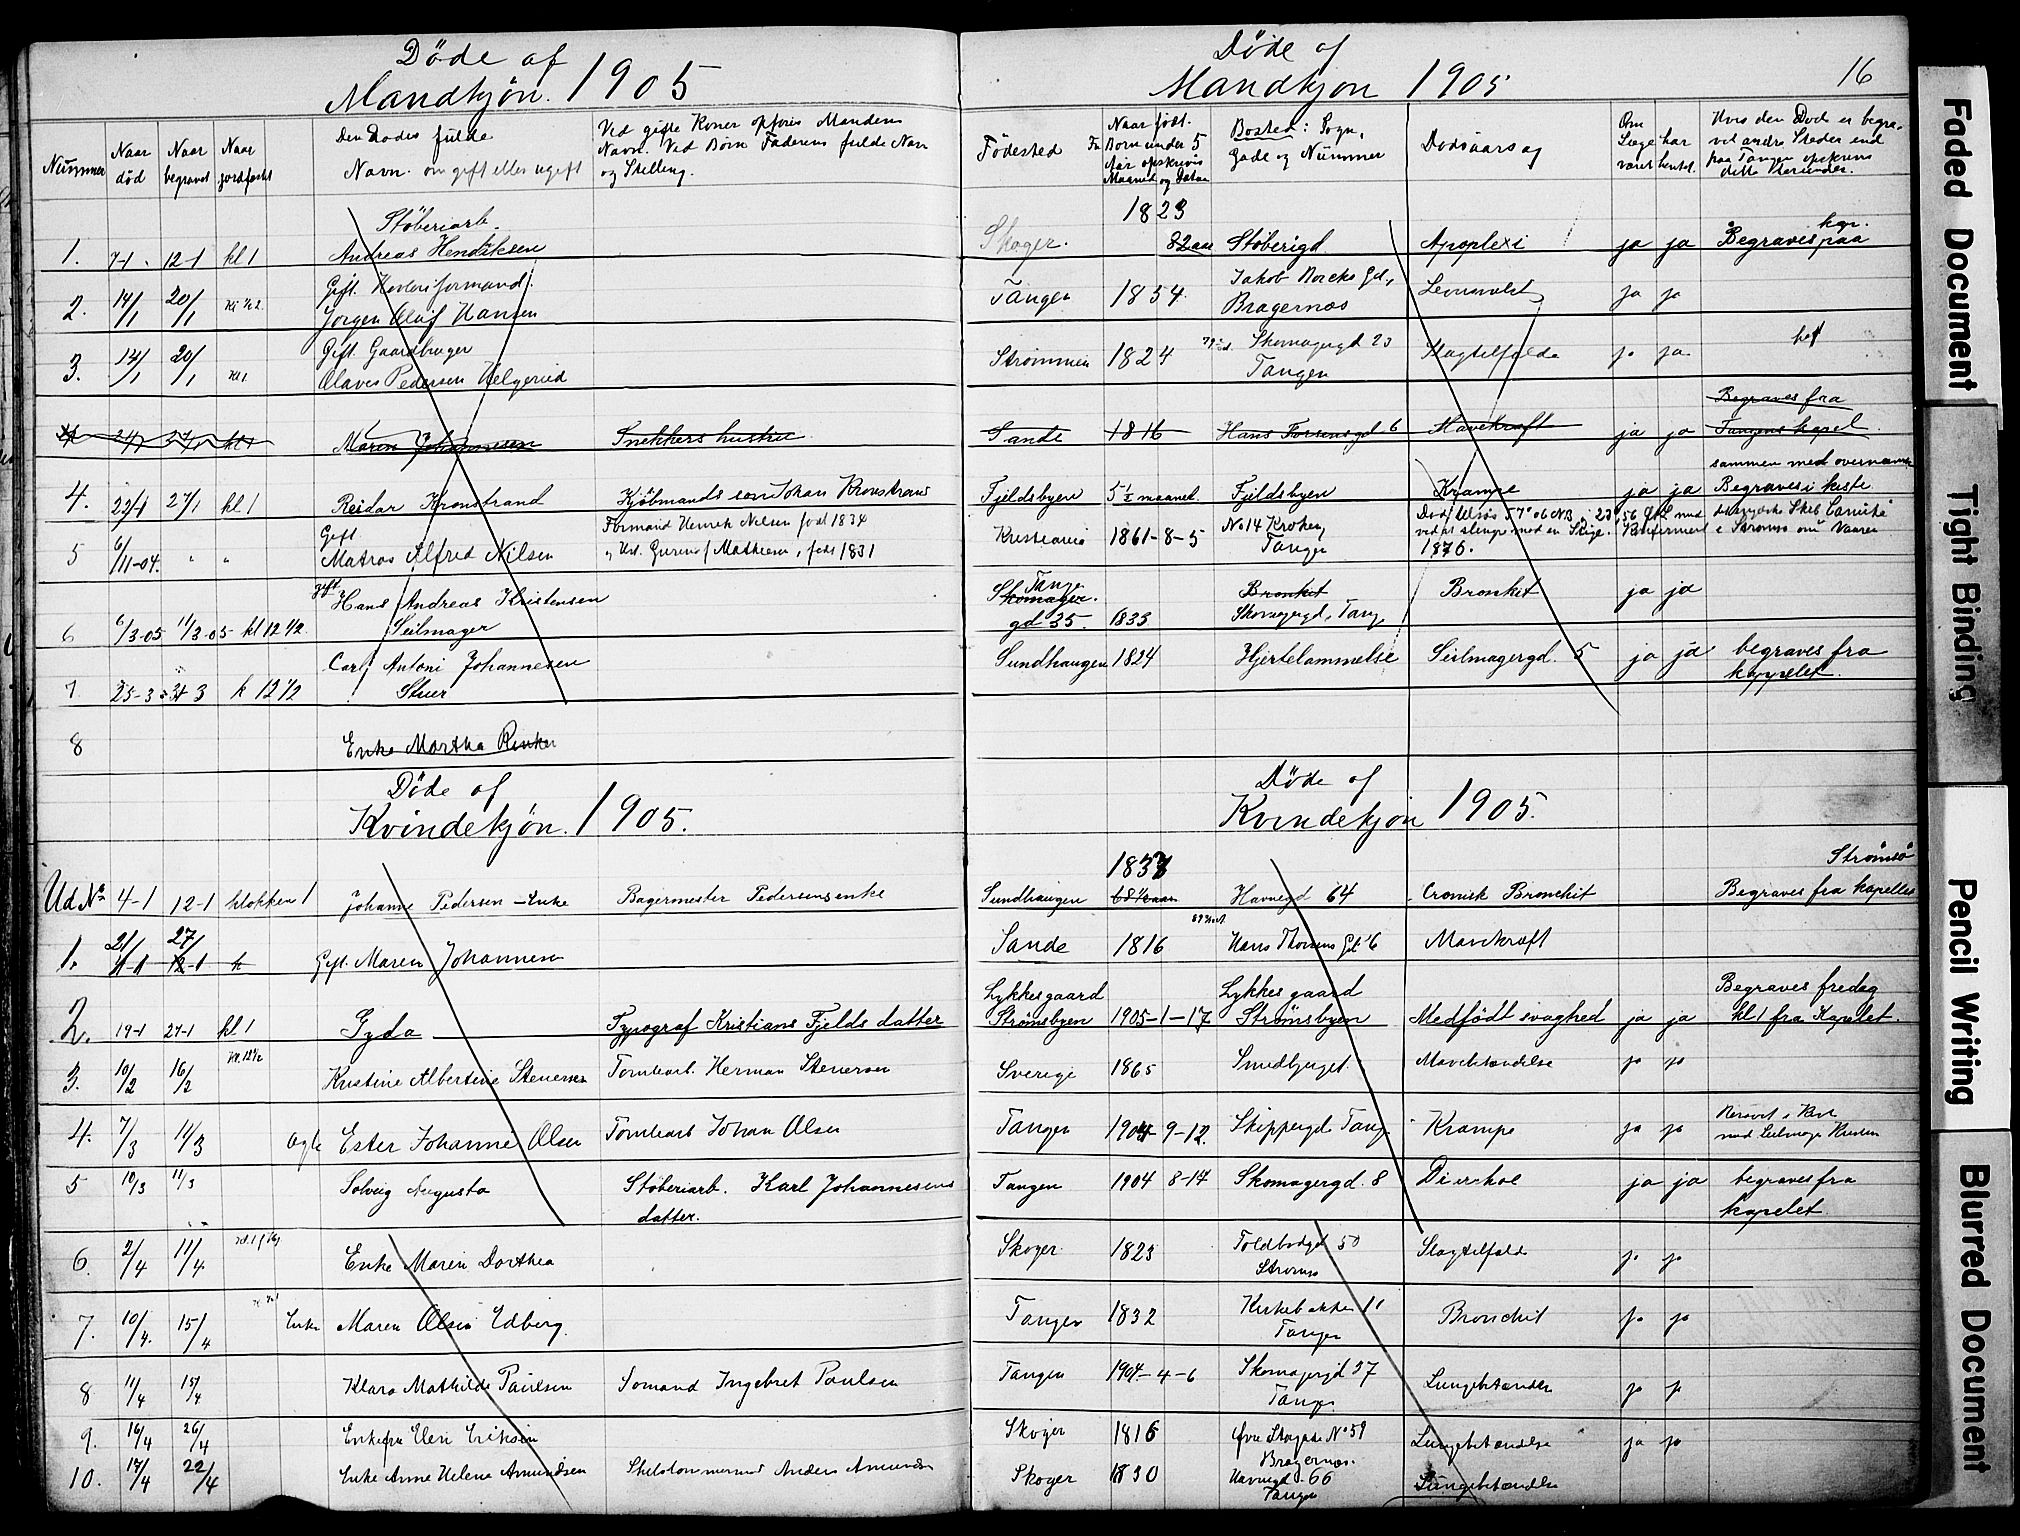 Døde af
Mandkjøn. 1905
Nummer
Naar død
Naar begravet
Naar jordfæstet
Den Dødes fulde Navn. om gift eller ugift
Ved gifte Koner opføres Mandens Navn. Ved Børn Faderens fulde Navn og Stilling.
Støberiarb.
1. 7-1. 12-1 kl 1 Andreas Hendriksen
Gift. Høvleriformand.
2. 14/1 20/1 Jørgen Olaf Hansen
Gift. Gaardbruger
3. 14/1 20/1 kl 1 Olaves Pedersen Helgerud
Maren Johannesen Snekkers hustru
4. 22/1 27/1 kl 1 Reidar Kronstrand Kjøbmands søn Johan Kronstrand
Gift Formand Henrik Nilsen født 1834
5 6/11-04. " " Matros Alfred Nilsen født 1831
gift Hans Andreas Kristensen
6 6/3-05 11/3-05 kl 12 1/2. Seilmager
Carl Antoni Johannesen
7 25-3 31 3 k 12 1/2 Stuer
8 Enke Martha Rinker
Døde af
Kvindekjøn. 1905.
Ud No 4-1 12-1 klokken 1 Johanne Pedersen - Enke Bagermester Pedersens enke
21/1 27/1
1. 11-1 12-1 k Gift. Maren Johannesen
2. 19-1 27-1 kl 1 Gyda Typograf Kristians Fjelds datter
3. 10/2 16/2 Kl. 12 1/2 Kristine Albertine Stenersen Tomtearb. Herman Stenersen
4. 7/3 11/3 Ester Johanne Olsen Tomtearb Johan Olsen
5 10/3 11/3 Solveig Augusta Støberiarb. Karl Johannesens
datter.
6. 2/4 11/4 Enke Maren Dorthea
7. 10/4. 15/4 Enke Maren Olsen Edberg.
8 11/4 15/4 Klara Mathilde Paulsen Sømand Ingebret Paulsen
9. 16/4 26/4 Enkefru Elen Eriksen
10. 17/4 22/4 Enke Anne Helene Amundsen Anders Amundsen
Døde af
Mandkjøn 1905
16
Fødested
Naar født. For Born under 5 Aar opskrives Maaned og Datum
Bosted: Sogn, Gade og Nummer
Dødsaarsag
Om Læge har været hentet.
Hvis den Døde er begravet andre Steder end paa Tangen opskrives dette herunder.
1823 kgr.
Skoger. 82 aar Støberigd. Apoplexi ja ja Begraves paa
Tangen 1854. Jakob Borcks Gd, Bragernæs ja ja
Strømmen 1824 Skomagergd 23 Tangen Slagtilfælde ja ja
Begraves fra
Sande 1816 6 Mavekræft ja ja Tangens kapel
sammen med
Fjeldsbyen 5 1/2 maaned. Fjeldsbyen Krampe ja ja Begraves i kiste
Kristiania 1861-8-5 No 14 Kroken, Tangen
1876.
Tangen
Skomager. Bronkit Bronkit ja ja
gd 35. 1833 Skomagergd, Tang,
Sundhaugen 1824 Hjertelammelse Seilmagergd. 5 ja ja begraves fra
kappelet.
Døde af
Kvindekjøn 1905.
1837 Strømsø
Sundhaugen 68 1/2 aar Havnegd 64 Cronisk Bronchit Begraves fra kapellet
Sande 1816 Hans Gd. 6 Mavekræft
Lykkesgaard Lykkes gaard Begraves fredag
Strømsbyen 1905-1-17 Strømsbyen Medfødt svaghed ja ja kl 1 fra Kapelet.
Sverige 1865 Smedbjerget. Mavebetændelse ja ja
Tangen 1904-9-12. Skippergd Tang. Krampe ja ja
Tangen 1904 8-17 Skomagergd. 8 ja ja begraves fra
kapelet
Skoger 1823 Toldbodgd 50 Strømsø Slagtilfælde ja ja
Tangen 1832 Kirkebakken 11 Tangen Bronchit ja ja
Tangen 1904-4-6 Skomagergd 37 Tangen Lungebetændelse ja ja
Skoger 1816 Øvre Storgade No 59 Bragernæs. Lungebetændelse ja ja
Skoger 1830 Havnegd 66 Tangen Lungebetændelse
Faded Document
Tight Binding
Pencil Writing
Blurred Document